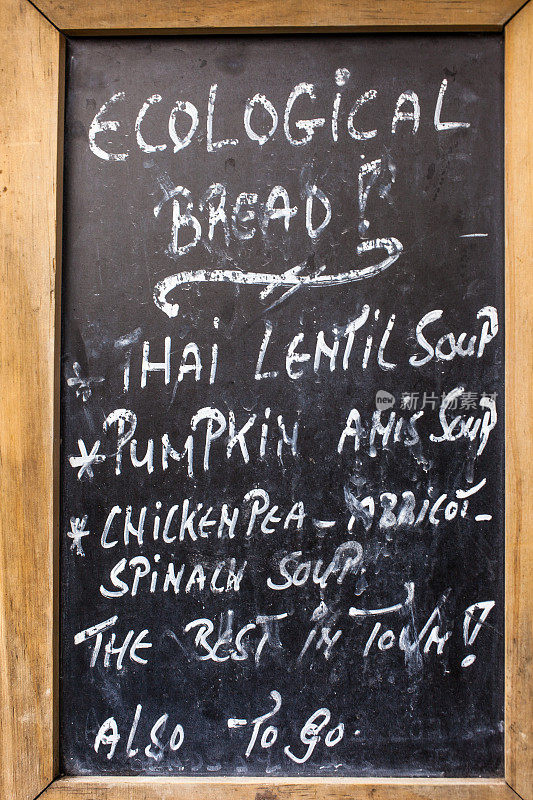 ECOLOGiCAL
BREAD!
* THAi LENTiL SOUP
* PUMPKiN ANiS SOUP
* CHiCKENPEA - ABRiCOT -
SPiNACH SOUP
THE BEST iN TOWN!
ALSO - TO GO.
new 視覺中國